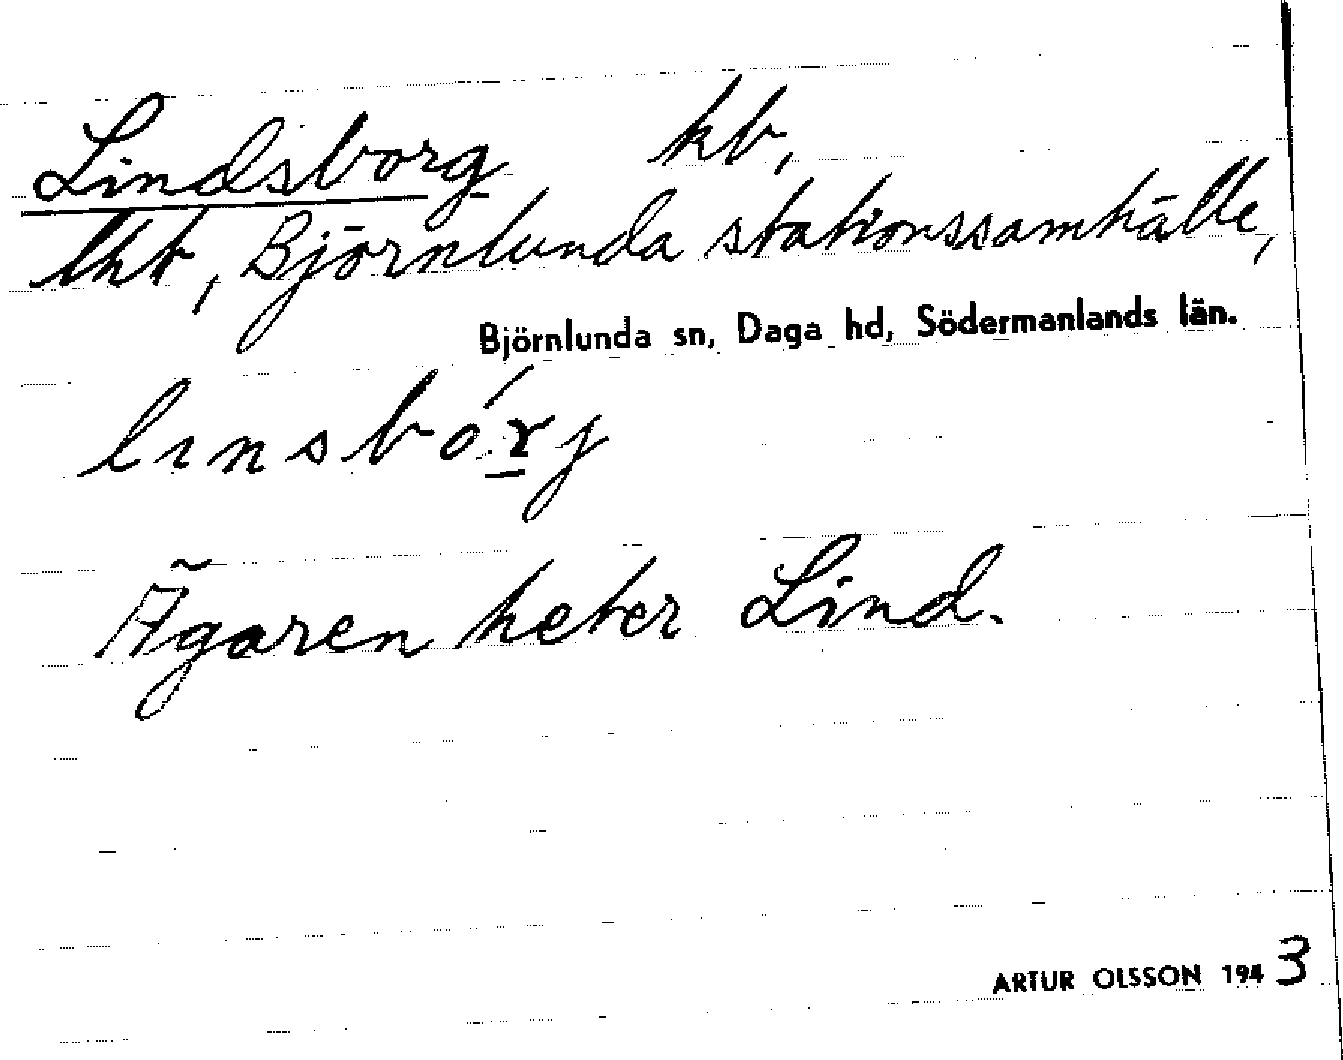 Lindsborg kb,
lht, Björnlunda stationssamhälle,
Björnlunda sn, Daga hd, Södermanlands län.
linsbórj
Ägaren heter Lind.
ARTUR OLSSON 1943